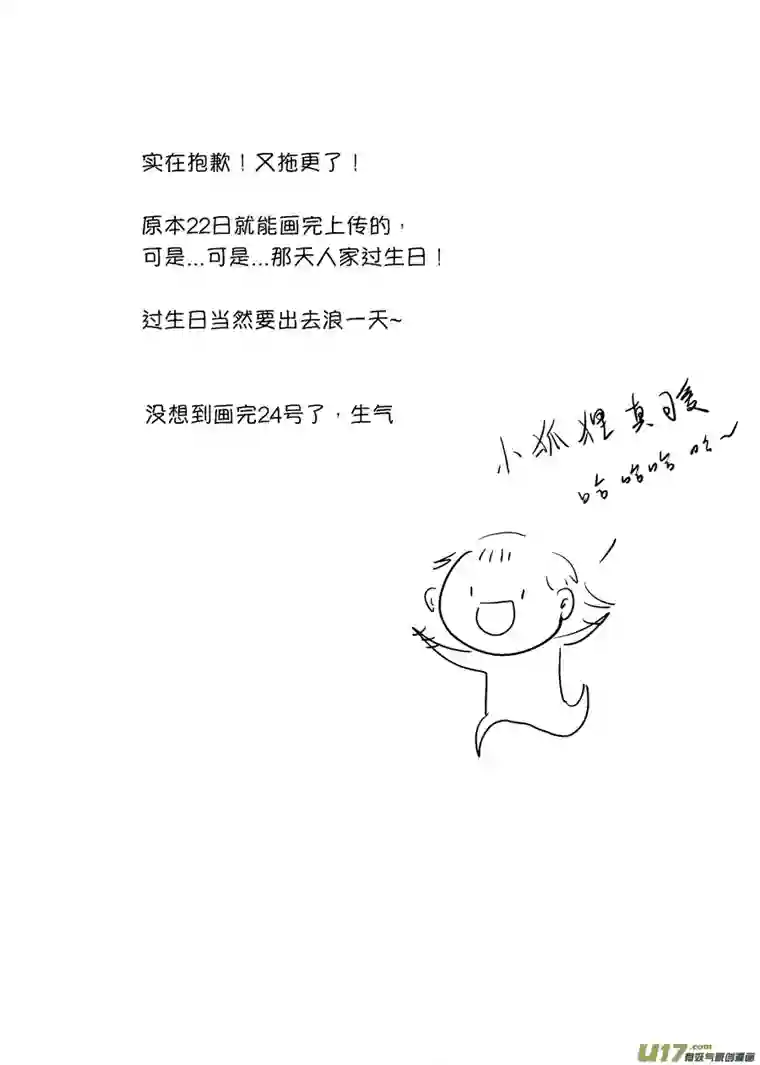 实在抱歉！又拖更了！
原本22日就能画完上传的，
可是...可是...那天人家过生日！
过生日当然要出去浪一天~
没想到画完24号了，生气
小狐狸真暖
哈哈哈哈~
U17.com
有妖气原创漫画